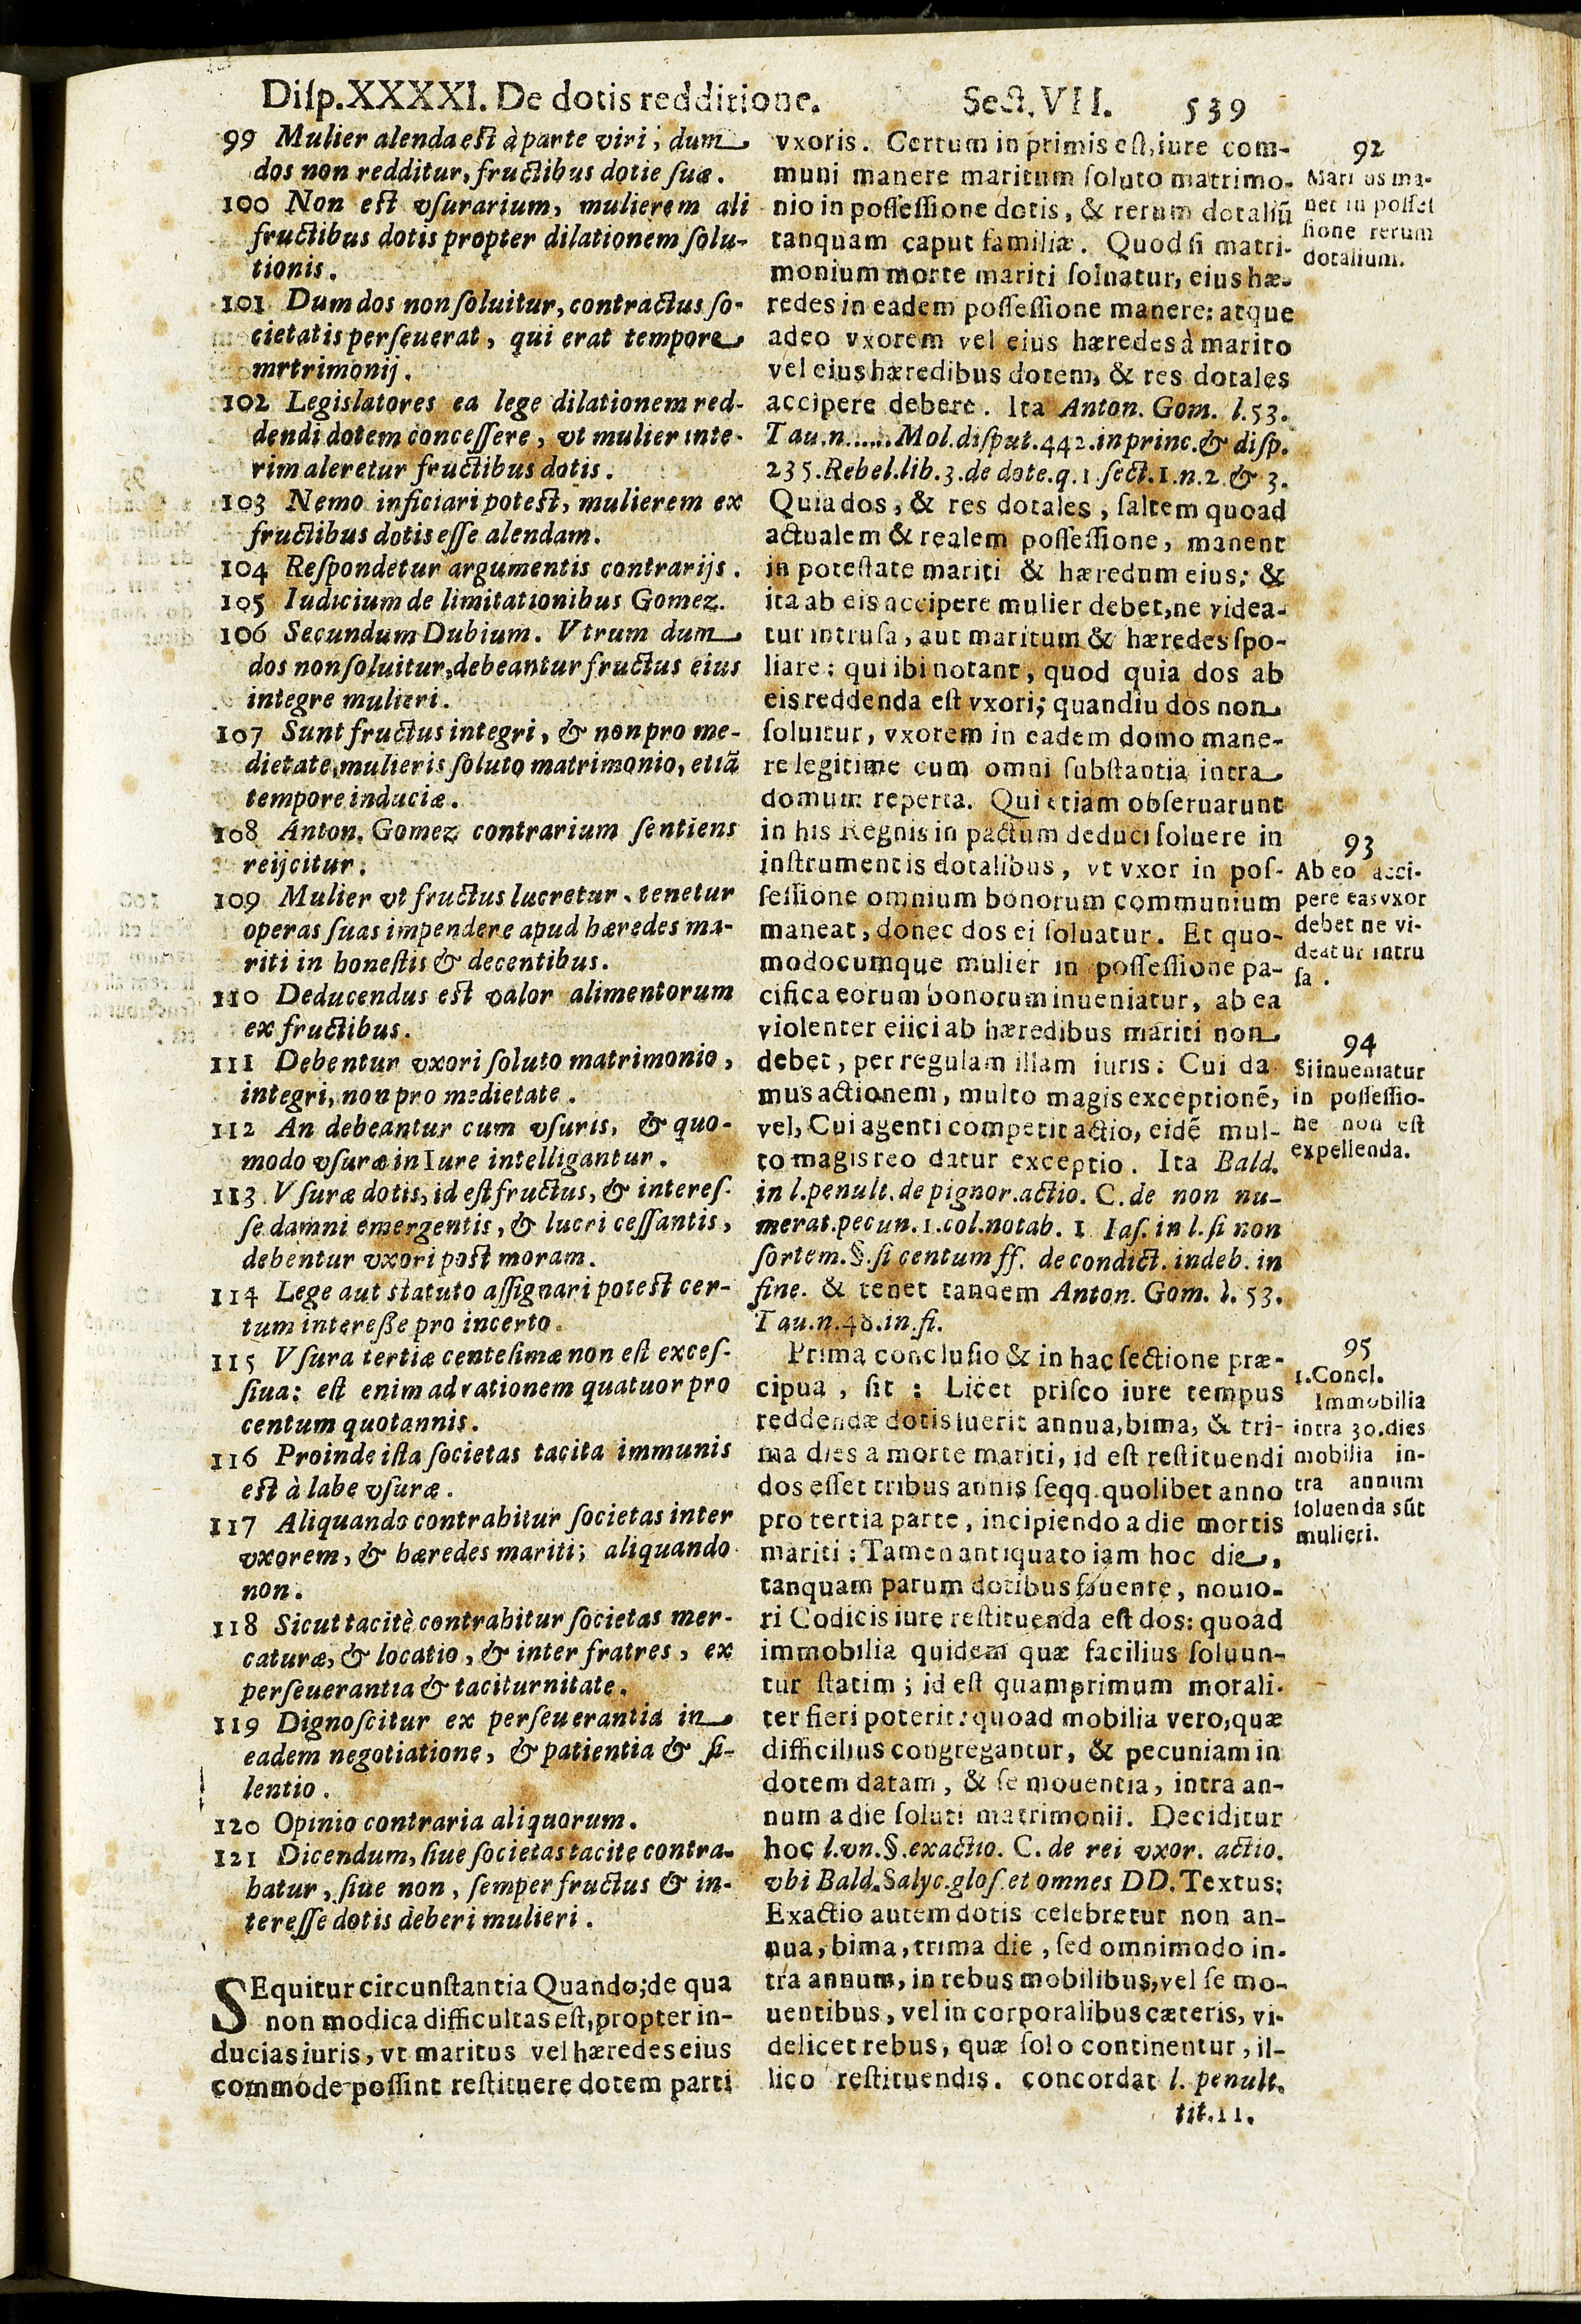 Diſp.XXXXI. De dotis redditione. Sect. VII. 539
99 Mulier alenda est à parte viri; dum
dos non redditur, fructibus dotie suæ.
100 Non est vſurarium, mulierem ali
fructibus dotis propter dilationem ſolu-
tionis.
101 Dum dos non ſoluitur, contractus ſo-
cietatis perſeuerat, qui erat tempore
mrtrimonij.
102 Legislatores ea lege dilationem red-
dendi dotem conceſſere, vt mulier inte-
rim aleretur fructibus dotis.
103 Nemo inficiari potest, mulierem ex
fructibus dotis eſſe alendam.
104 Reſpondetur argumentis contrarijs.
105 Iudicium de limitationibus Gomez.
106 Secundum Dubium. Vtrum dum
dos non ſoluitur, debeantur fructus eius
integre mulieri.
107 Sunt fructus integri, & non pro me-
dietate, mulieris ſoluto matrimonio, etiã
tempore induciæ.
108 Anton. Gomez contrarium ſentiens
reijcitur.
109 Mulier vt fructus lucretur, tenetur
operas ſuas impendere apud hæredes ma-
riti in honeſtis & decentibus.
110 Deducendus est valor alimentorum
ex fructibus.
111 Debentur vxori ſoluto matrimonio,
integri, non pro medietate.
112 An debeantur cum vſuris, & quo-
modo vſuræ in Iure intelligantur.
113 Vſuræ dotis, id eſt fructus, & intereſ-
ſe damni emergentis, & lucri ceſſantis,
debentur vxori post moram.
114 Lege aut statuto aſſignari potest cer-
tum intereße pro incerto.
115 Vſura tertiæ centeſimæ non eſt exceſ-
ſiua: eſt enim ad rationem quatuor pro
centum quotannis.
116 Proinde iſta ſocietas tacita immunis
est à labe vſuræ.
117 Aliquando contrahitur ſocietas inter
vxorem, & hæredes mariti; aliquando
non.
118 Sicut tacitè contrahitur ſocietas mer-
caturæ, & locatio, & inter fratres, ex
perſeuerantia & taciturnitate.
119 Dignoſcitur ex perſeuerantia in
eadem negotiatione, & patientia & ſi-
lentio.
120 Opinio contraria aliquorum.
121 Dicendum, ſiue ſocietas tacite contra-
hatur, ſiue non, ſemper fructus & in-
tereſſe dotis deberi mulieri.
SEquitur circunſtantia Quando; de qua
non modica difficultas eſt, propter in-
ducias iuris, vt maritus vel hæredes eius
commode poſſint reſtituere dotem parti
vxoris. Certum in primis eſt, iure com-
muni manere maritum ſoluto matrimo-
nio in poſſeſſione dotis, & rerum dotaliũ
tanquam caput familiæ. Quod ſi matri-
monium morte mariti ſoluatur, eius hæ-
redes in eadem poſſeſſione manere: atque
adeo vxorem vel eius hæredes à marito
vel eius hæredibus dotem, & res dotales
accipere debere. Ita Anton. Gom. l.53.
Tau.n..... Mol.diſput.442.in princ.& diſp.
235.Rebel.lib.3.de dote.q.1.ſect.1.n.2.& 3.
Quia dos, & res dotales, ſaltem quoad
actualem & realem poſſeſſione, manent
in poteſtate mariti & hæredum eius; &
ita ab eis accipere mulier debet, ne videa-
tur intruſa, aut maritum & hæredes ſpo-
liare: qui ibi notant, quod quia dos ab
eis reddenda eſt vxori; quandiu dos non
ſoluitur, vxorem in eadem domo mane-
re legitime cum omni ſubſtantia intra
domum reperta. Qui etiam obſeruarunt
in his Regnis in pactum deduci ſoluere in
inſtrumentis dotalibus, vt vxor in poſ-
ſeſſione omnium bonorum communium
maneat, donec dos ei ſoluatur. Et quo-
modocumque mulier in poſſeſſione pa-
cifica eorum bonorum inueniatur, ab ea
violenter eiici ab hæredibus mariti non
debet, per regulam illam iuris: Cui da
mus actionem, multo magis exceptionẽ,
vel, Cui agenti competit actio, eidẽ mul-
to magis reo datur exceptio. Ita Bald.
in l.penult.de pignor.actio. C.de non nu-
merat.pecun.1.col.notab. 1 Iaſ. in l. ſi non
ſortem.§.ſi centum ff. de condict. indeb. in
fine. & tenet tandem Anton. Gom. l. 53.
Tau.n.48.in.fi.
Prima concluſio & in hac ſectione præ-
cipua, ſit : Licet priſco iure tempus
reddendæ dotis fuerit annua, bima, & tri-
ma dies a morte mariti, id eſt reſtituendi
dos eſſet tribus annis ſeqq. quolibet anno
pro tertia parte, incipiendo a die mortis
mariti: Tamen antiquato iam hoc die,
tanquam parum dotibus fauente, nouio-
ri Codicis iure reſtituenda eſt dos: quoad
immobilia quidem quæ facilius ſoluun-
tur ſtatim; id eſt quamprimum morali-
ter fieri poterit: quoad mobilia vero, quæ
difficilius congregantur, & pecuniam in
dotem datam, & ſe mouentia, intra an-
num a die ſoluti matrimonii. Deciditur
hoc l.vn.§.exactio. C. de rei vxor. actio.
vbi Bald.Salyc.gloſ.et omnes DD. Textus:
Exactio autem dotis celebretur non an-
nua, bima, trima die, ſed omnimodo in-
tra annum, in rebus mobilibus, vel ſe mo-
uentibus, vel in corporalibus cæteris, vi-
delicet rebus, quæ ſolo continentur, il-
lico reſtituendis. concordat l. penult.
tit.11.
92
Mari us ma-
net in poſſeſ
ſione rerum
dotalium.
93
Ab eo acci-
pere eas vxor
debet ne vi-
deatur intru
ſa.
94
Si inueniatur
in poſſeſſio-
ne non eſt
expellenda.
95
1.Concl.
Immobilia
intra 30.dies
mobilia in-
tra annum
ſoluenda sũt
mulieri.